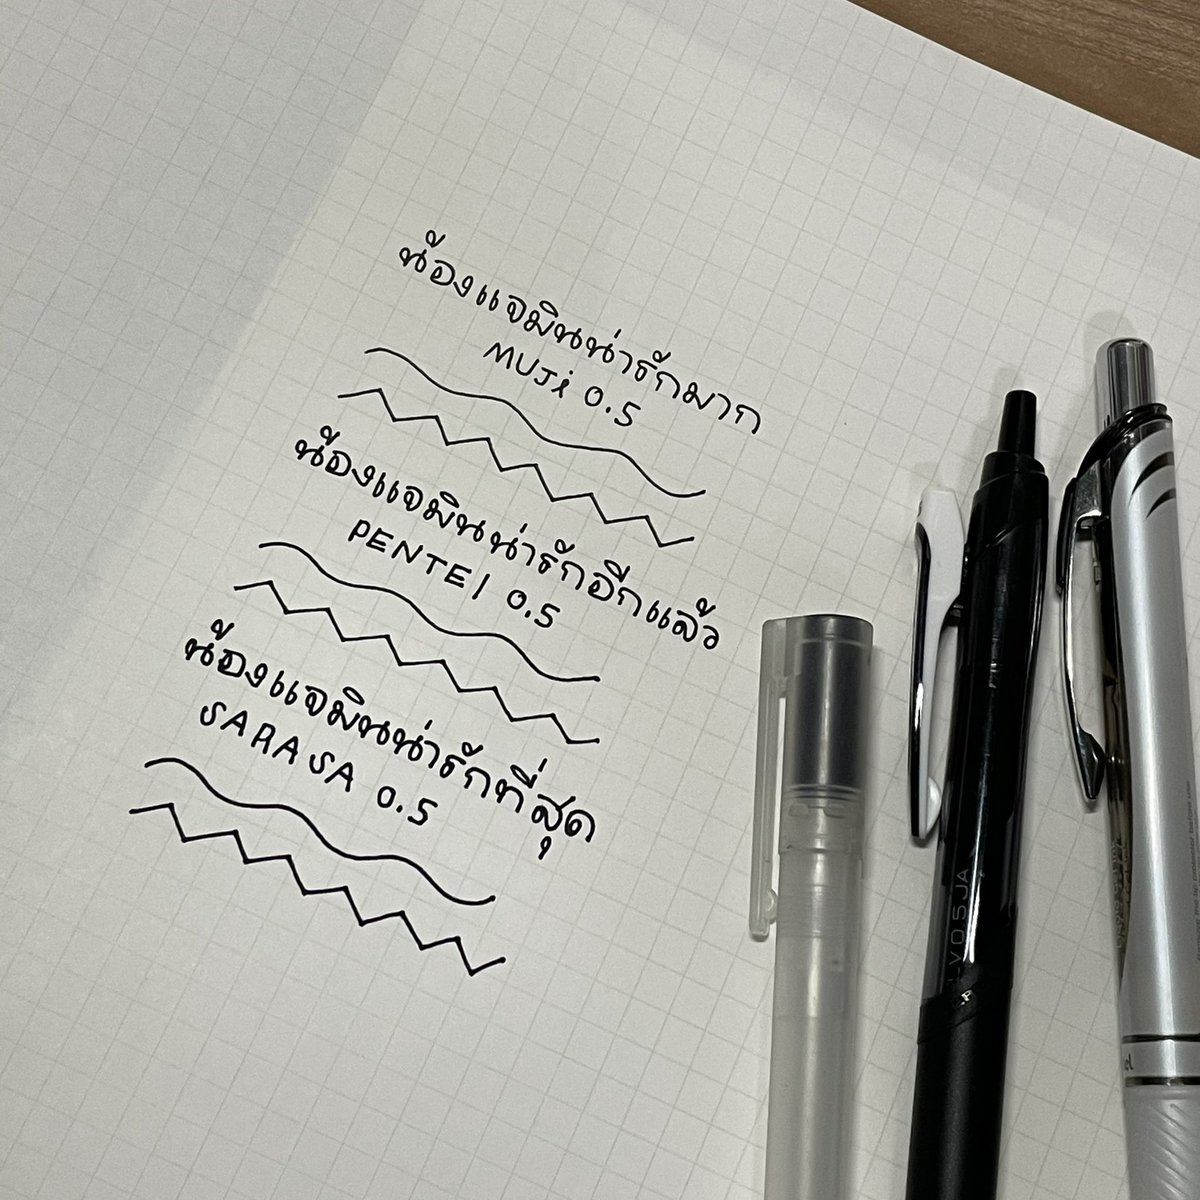 น้องแจมินน่ารักมาก
MUJi 0.5
น้องแจมินน่ารักอีกแล้ว
PENTEl 0.5
น้องแจมินน่ารักที่สุด
SARASA 0.5
LV05JA